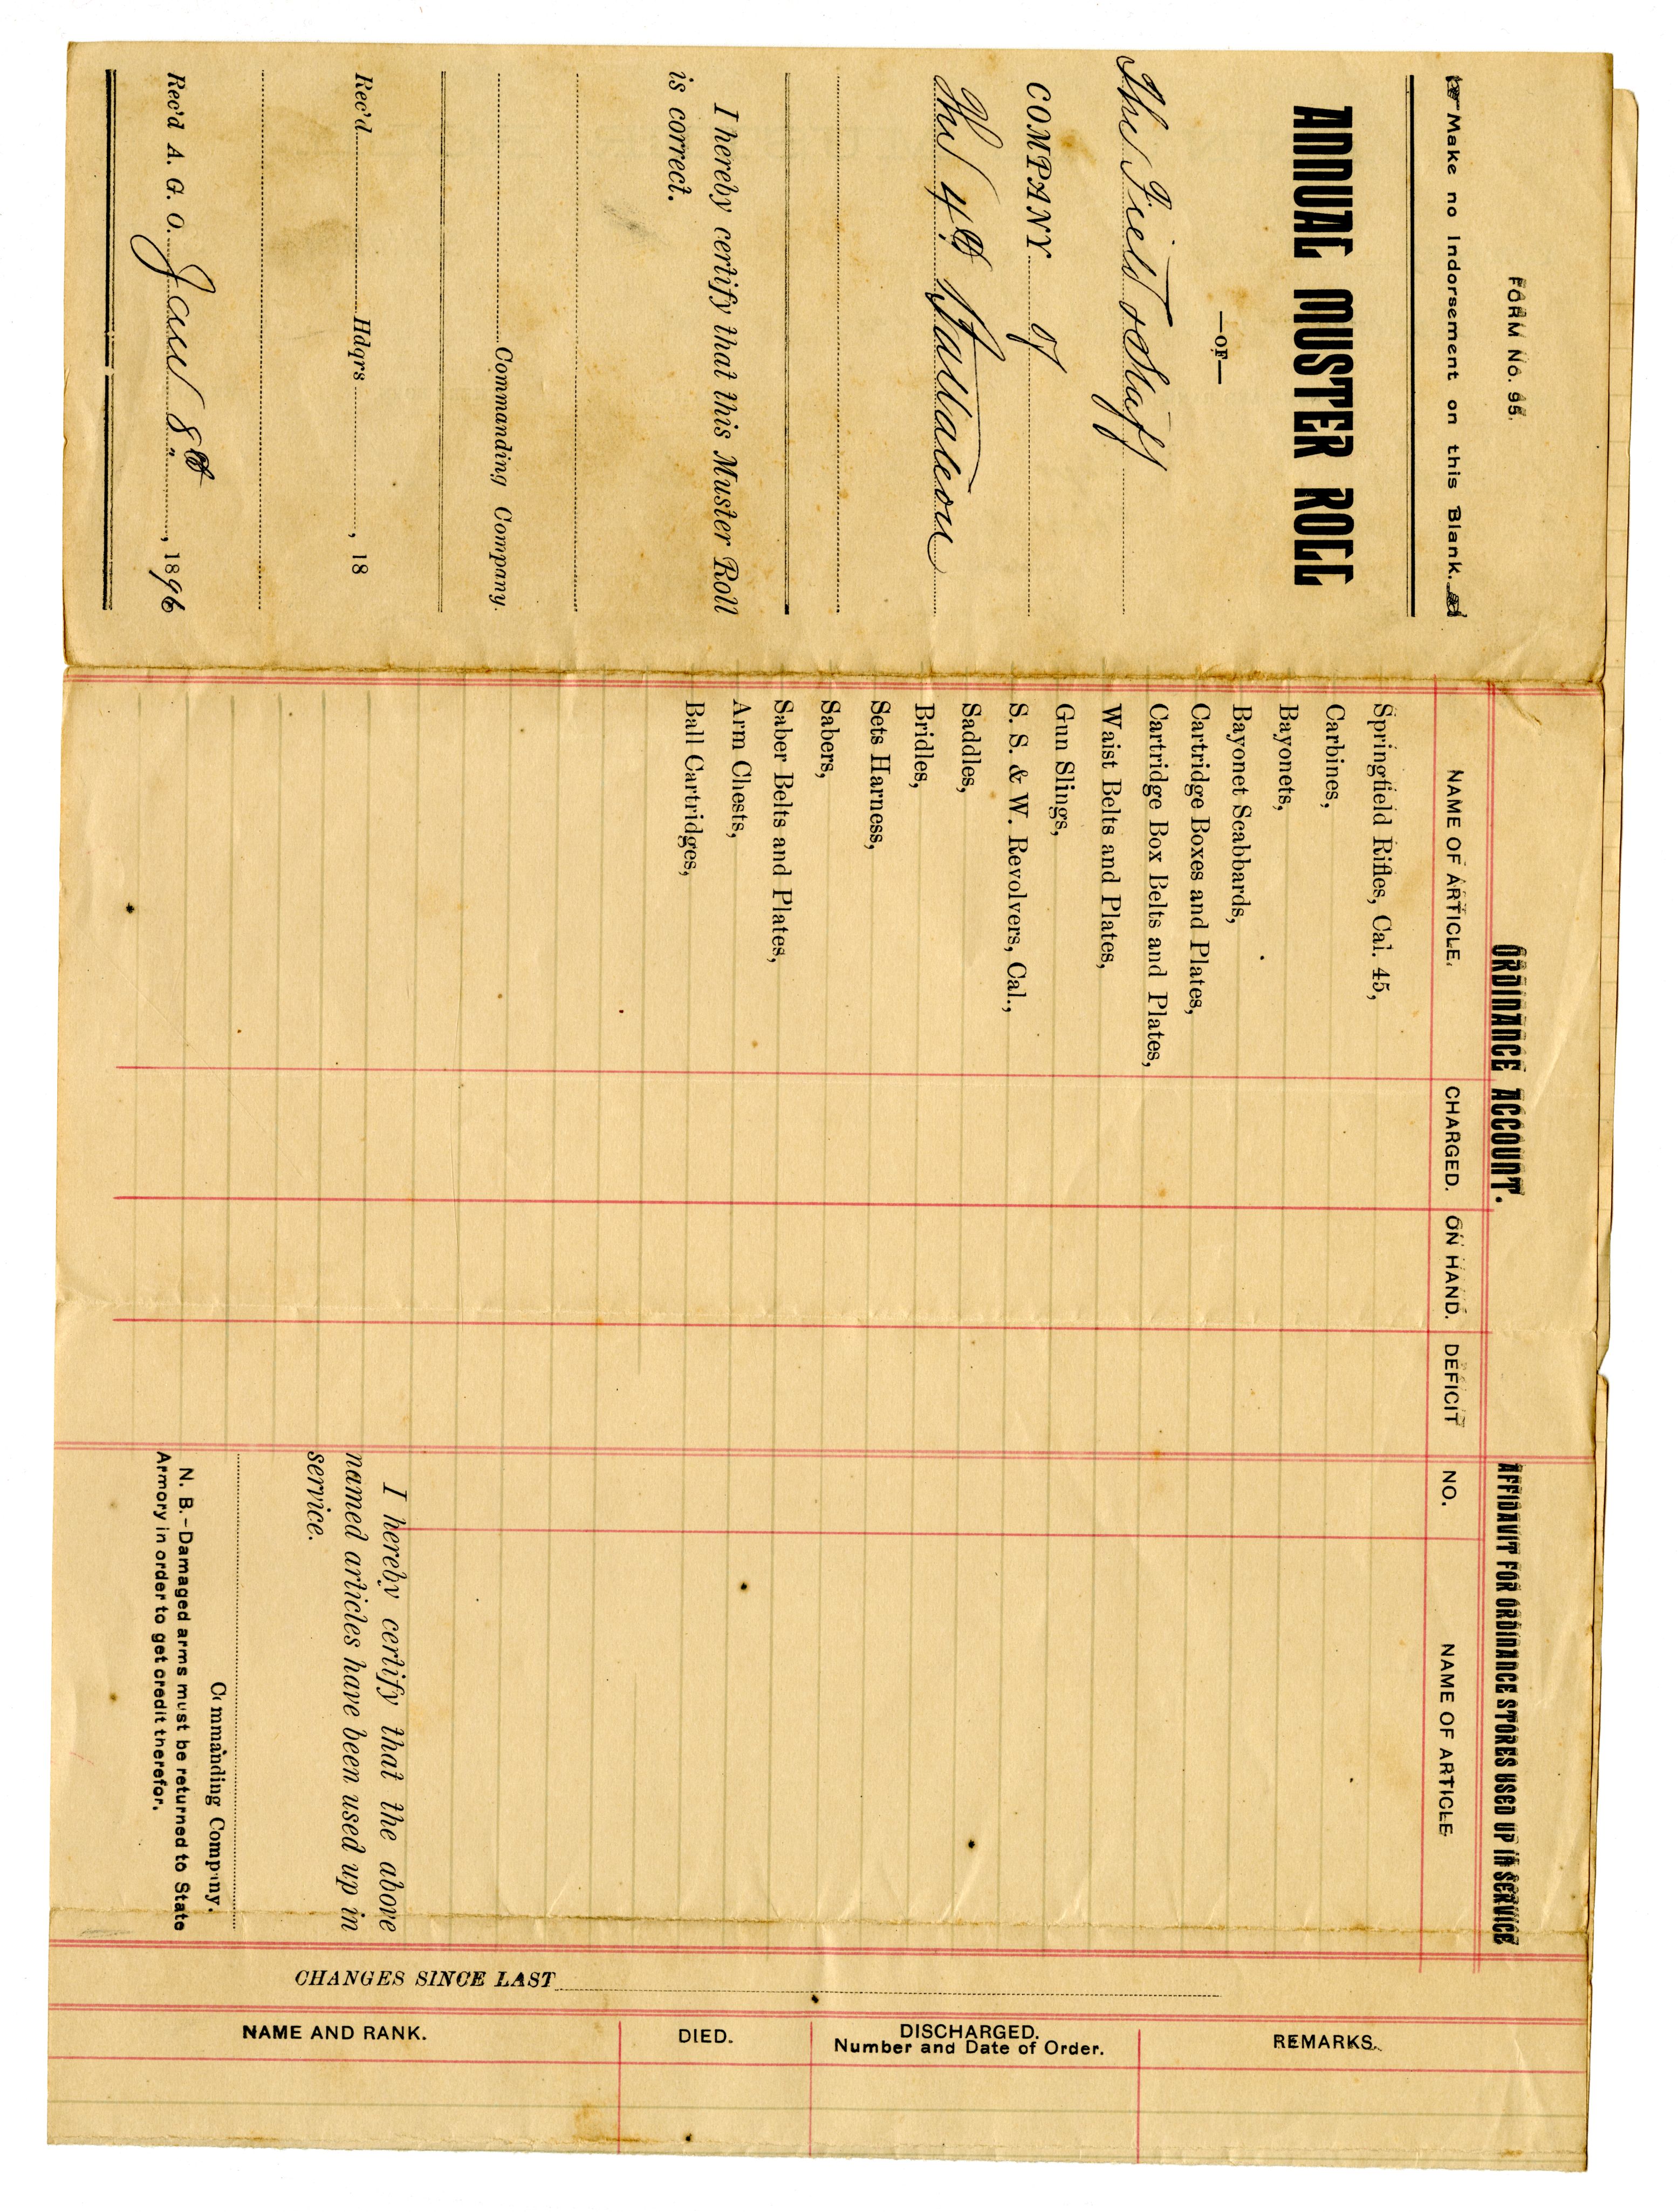 FORM No. 95.
☞ Make no Indorsement on this Blank. ☜
ANNUAL MUSTER ROLL
—OF—
The Field & Staff
COMPANY of
The 4th Battaleon
I hereby certify that this Muster Roll
is correct.
Commanding Company.
Rec'd Hdqrs , 18
Rec'd A. G. O. Jany 8th , 1896
ORDINANCE ACCOUNT.
NAME OF ARTICLE. CHARGED. ON HAND. DEFICIT
Springfield Rifles, Cal. 45,
Carbines,
Bayonets,
Bayonet Scabbards,
Cartridge Boxes and Plates,
Cartridge Box Belts and Plates,
Waist Belts and Plates,
Gun Slings,
S. S. & W. Revolvers, Cal.,
Saddles,
Bridles,
Sets Harness,
Sabers,
Saber Belts and Plates,
Arm Chests,
Ball Cartridges,
AFFIDAVIT FOR ORDINANCE STORES USED UP IN SERVICE
NO. NAME OF ARTICLE
I hereby certify that the above
named articles have been used up in
service.
Commanding Company.
N. B.-Damaged arms must be returned to State
Armory in order to get credit therefor.
CHANGES SINCE LAST
NAME AND RANK. DIED. DISCHARGED. REMARKS.
Number and Date of Order.